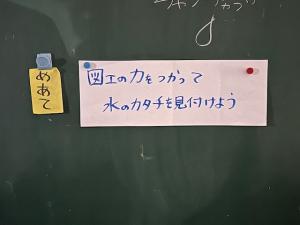 めあて
図工の力をつかって
水のカタチを見付けよう